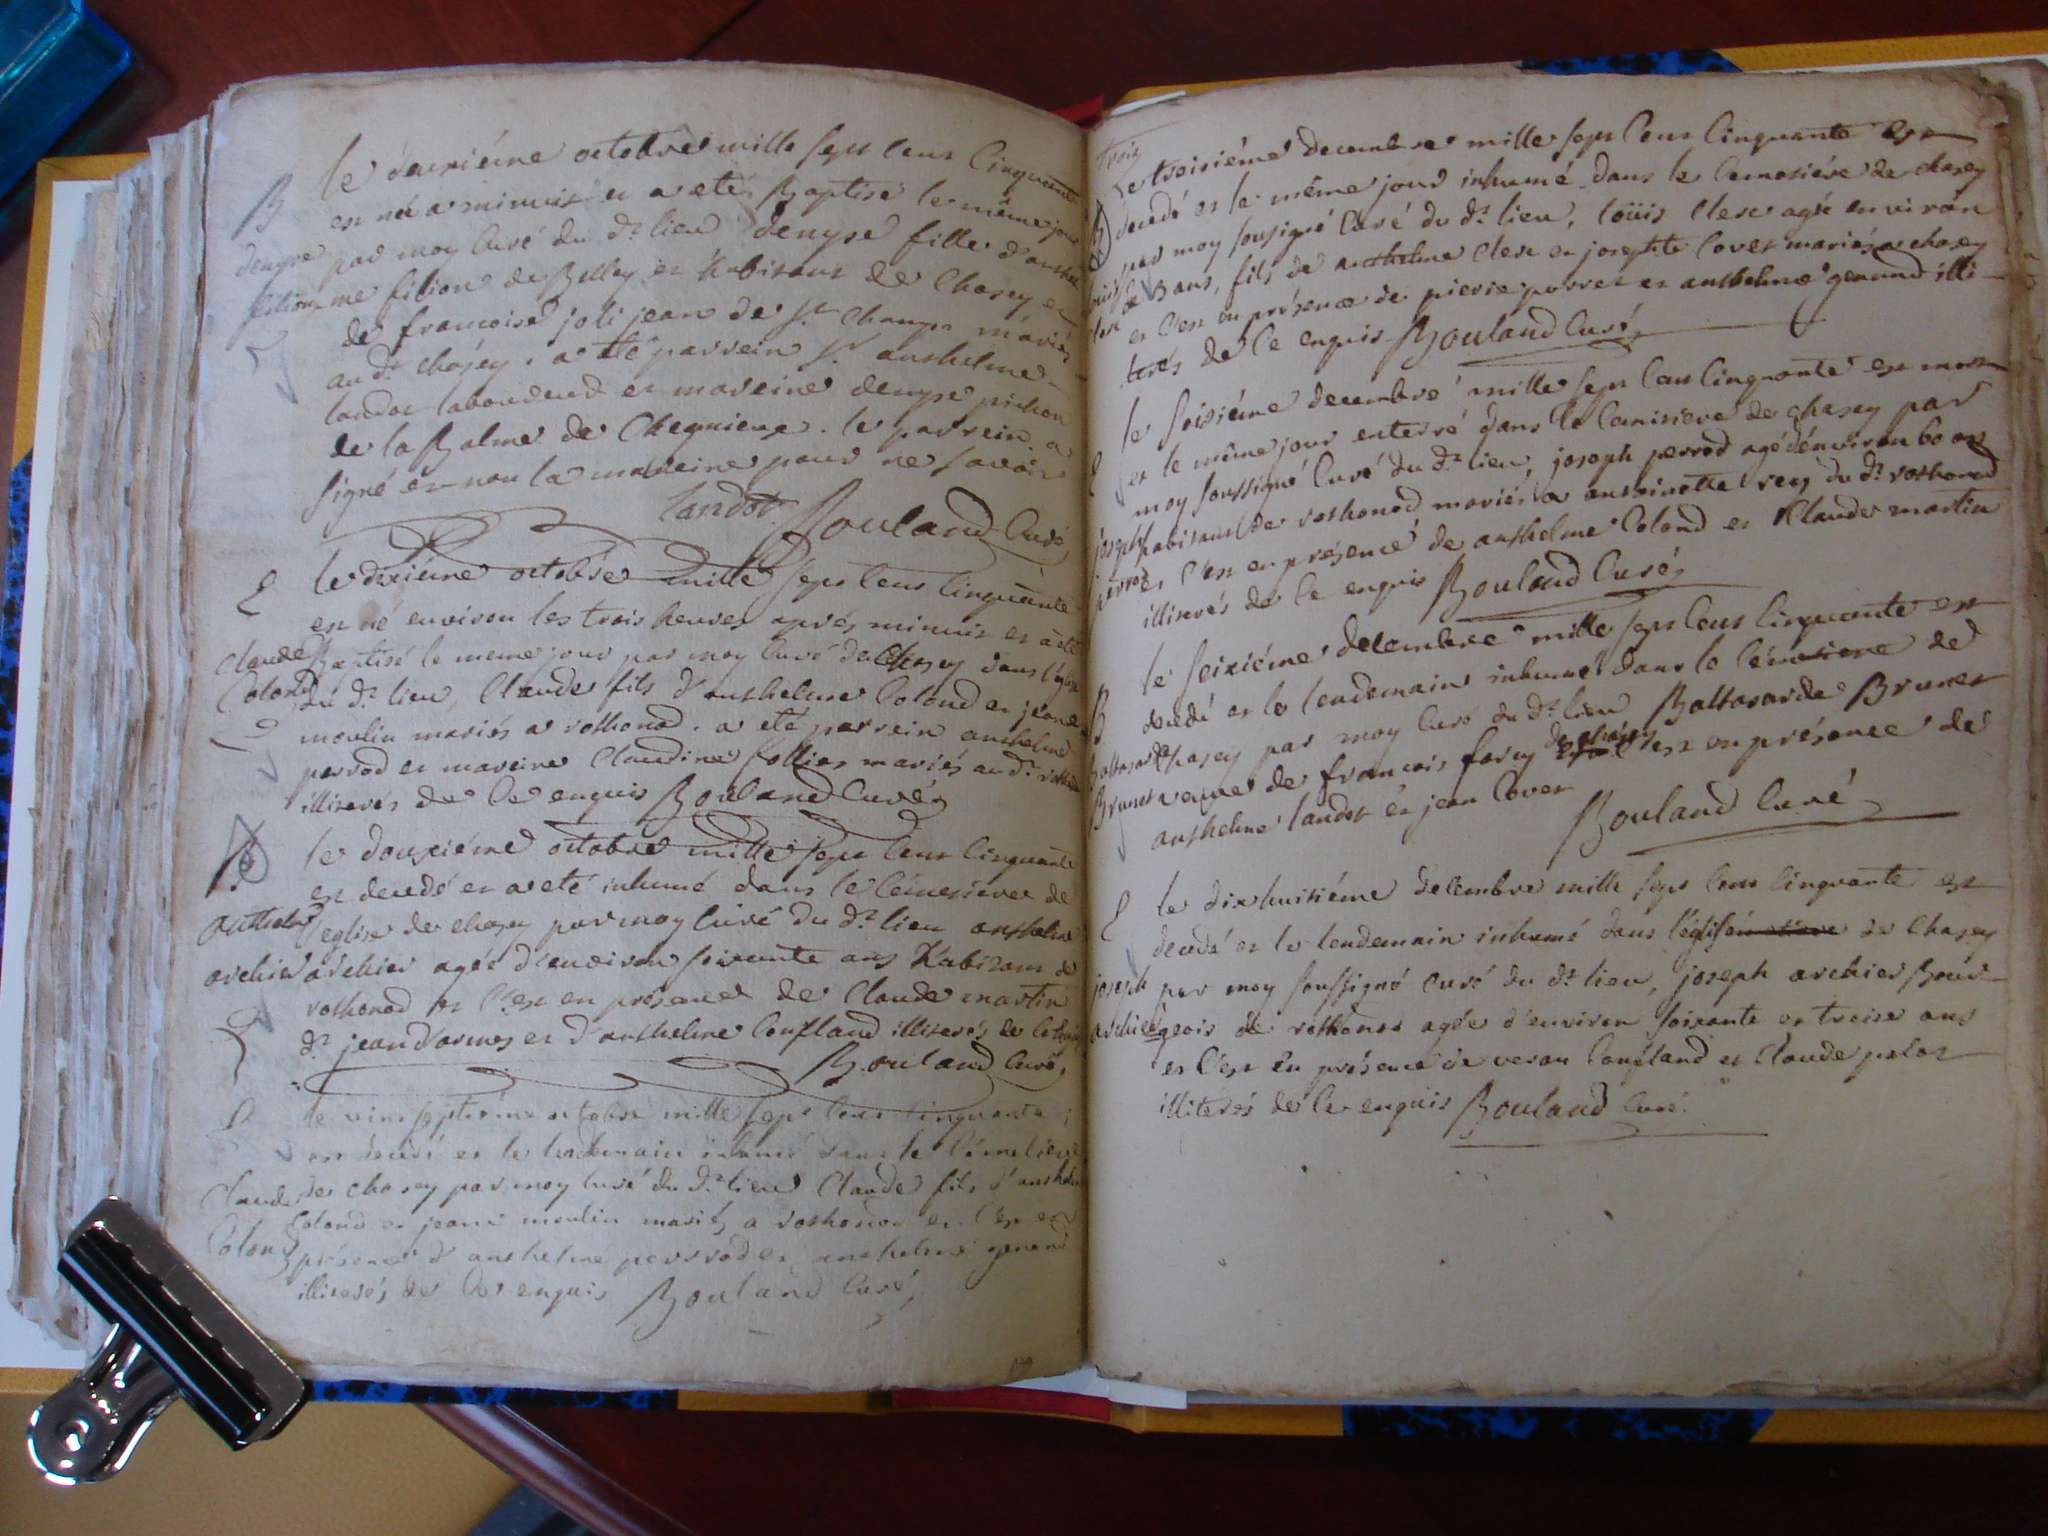 le deuxiéme octobre mille sept cent cinquante
B
est née a minuit et a eté Baptisé le même jour
denyse par moy curé du dt lieu denyse fille d'anthel
filion me filion de Belley et habitant de Chasey et
de francoise joli jean de st Champ mariés
au dt chasey. a eté parrein sr anthelme
landot laboureur et mareine denyse pichon
de la Balme de . le parrein a
signé et non la mareine pour ne savoir
landot Bouland Curé
E
le dixiéme octobre mille sept cent cinquante
est né environ les trois heures aprés minuit et a eté
Claude Baptisé le meme jour par moy curé de Chasey dans l'église
Colond du dt lieu, Claude fils d'anthelme Colond et jeanne
moulin mariés a rothonod. a eté parrein anthelme
perrod et mareine Claudine follies mariés au dt
illiterés de ce enquis Bouland Curé
le douziéme octobre mille sept cent cinquante
est decedé et a eté inhumé dans le
anthelme eglise de chasey par moy curé du dt lieu anthelme
archier archier agée d'environ soixante ans habitant de
rothonod et c'est en présence de Claude martin
dt jean d'armes et d'anthelme Coufland illiterés de ce
Bouland Curé
le vint septiéme octobre mille sept cent cinquante
est decedé et le lendemain inhumé dans le
Claude de chasey par moy curé du dt lieu Claude fils d'anthelme
Colond Colond et jeanne moulin mariés a rothonod et c'est en
présence d'anthelme perrod et anthelme genand
illiterés de ce enquis Bouland Curé
trois
Le troisiéme decembre mille sept cent cinquante est
decedé et le même jour inhumé dans le de chasey
par moy sousigné Curé du dt lieu, loüis Clerc agée environ
loüis de 3 ans, fils de anthelme Clerc et josephte Covet mariés a chasey
Clerc et c'est en présence de pierre porret et anthelme genand illi-
terés de ce enquis Bouland Curé
le decembre mille sept cent cinquante est mort
E
et le même jour enterré dans le de chasey par
moy soussigné Curé du dt lieu, joseph perrod agé d'environ 60 ans
joseph habitant de rothonod mariés a antoinette rey du dt rothonod
perrod et c'est en présence de anthelme Colond et Claude martin
illiterés de ce enquis Bouland Curé
le seiziéme decembre mille sept cent cinquante est
B
decedé et le lendemain inhumé dans le de
Baltasarde chasey par moy Curé du dt lieu Baltasarde Brunet
Brunet veuve de francois de chasey c'est en présence de
anthelme landot et jean Covet
Bouland Curé
E
le dixhuitiéme decembre mille sept cent cinquante est
decedé et le lendemain inhumé dans l'église de Chasey
joseph par moy soussigné curé du dt lieu, joseph archier Bour-
archier geois de rothonod agée d'environ soixante et treise ans
et c'est en présence de veran Coufland et Claude pelot
illiterés de ce enquis Bouland Curé.